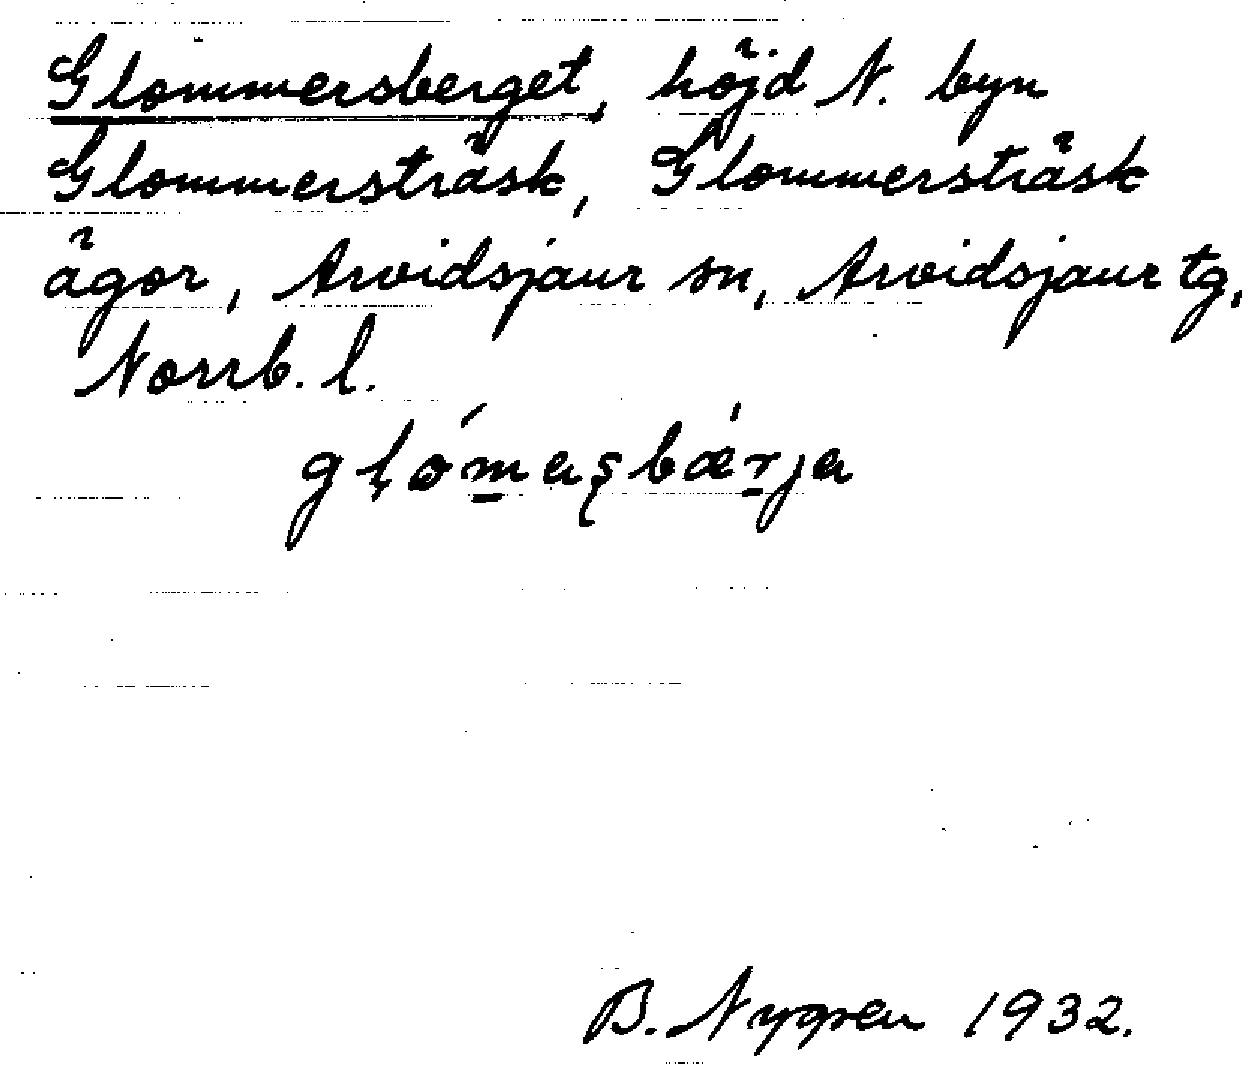 Glommersberget, höjd N. byn
Glommersträsk, Glommersträsk
ägor, Arvidsjaur sn, Arvidsjaur tg,
Norrb. l.
B. Nygren 1932.